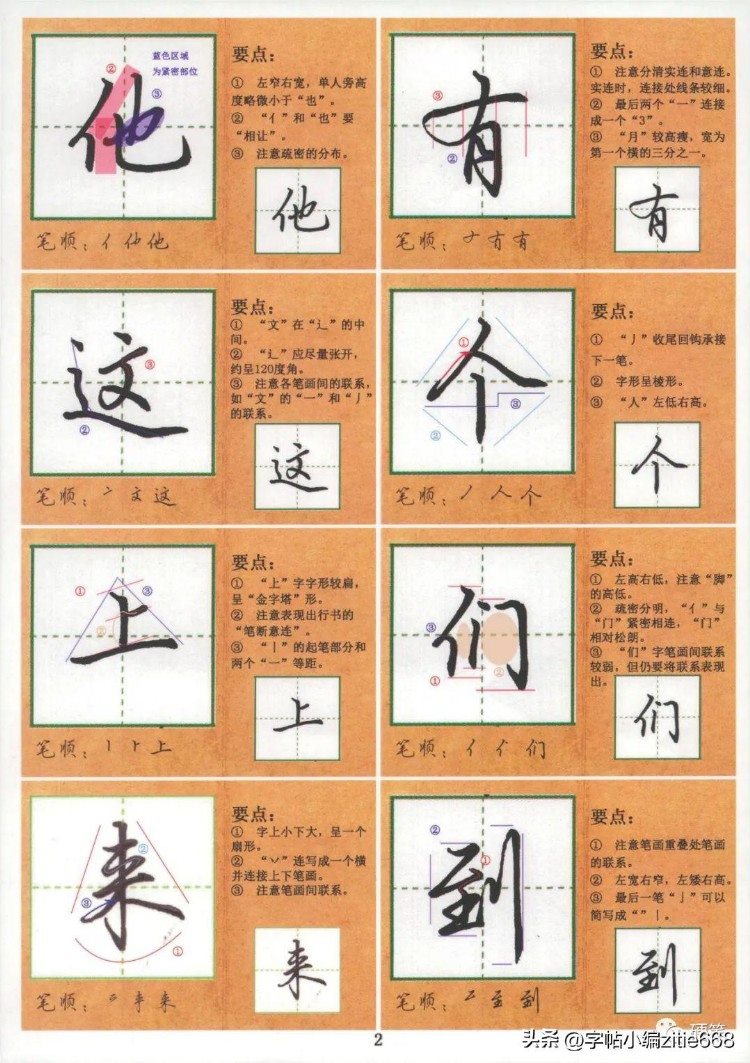 他
蓝色区域
为紧密部位
②
③
要点：
① 左窄右宽，单人旁高
度略微小于“也”。
② “亻”和“也”要
“相让”。
③ 注意疏密的分布。
他
笔顺：亻 他 他
有
③
②
要点：
① 注意分清实连和意连。
实连时，连接处线条较细。
② 最后两个“一”连接
成一个“3”。
③ “月”较高瘦，宽为
第一个横的三分之一。
有
笔顺：𠂇 有 有
这
③
②
要点：
① “文”在“辶”的中
间。
② “辶”应尽量张开，
约呈120度角。
③ 注意各笔画间的联系，
如“文”的“一”和“丿”
的联系。
这
笔顺：亠 文 这
个
①
③
②
要点：
① “丿”收尾回钩承接
下一笔。
② 字形呈棱形。
③ “人”左低右高。
个
笔顺：丿 人 个
上
①
③
②
要点：
① “上”字字形较扁，
呈“金字塔”形。
② 注意表现出行书的
“笔断意连”。
③ “丨”的起笔部分和
两个“一”等距。
上
笔顺：丨 ⺊ 上
们
③
①
②
要点：
① 左高右低，注意“脚”
的高低。
② 疏密分明，“亻”与
“门”紧密相连，“门”
相对松朗。
③ “们”字笔画间联系
较弱，但仍要将联系表现
出。
们
笔顺：亻 们
来
②
③
①
要点：
① 字上小下大，呈一个
扇形。
② “丷”连写成一个横
并连接上下笔画。
③ 注意笔画间联系。
来
笔顺：来
到
②
①
③
要点：
① 注意笔画重叠处笔画
的联系。
② 左宽右窄，左矮右高。
③ 最后一笔“亅”可以
简写成“”丨。
到
笔顺：至 到
2
头条 @字帖小编zitie668